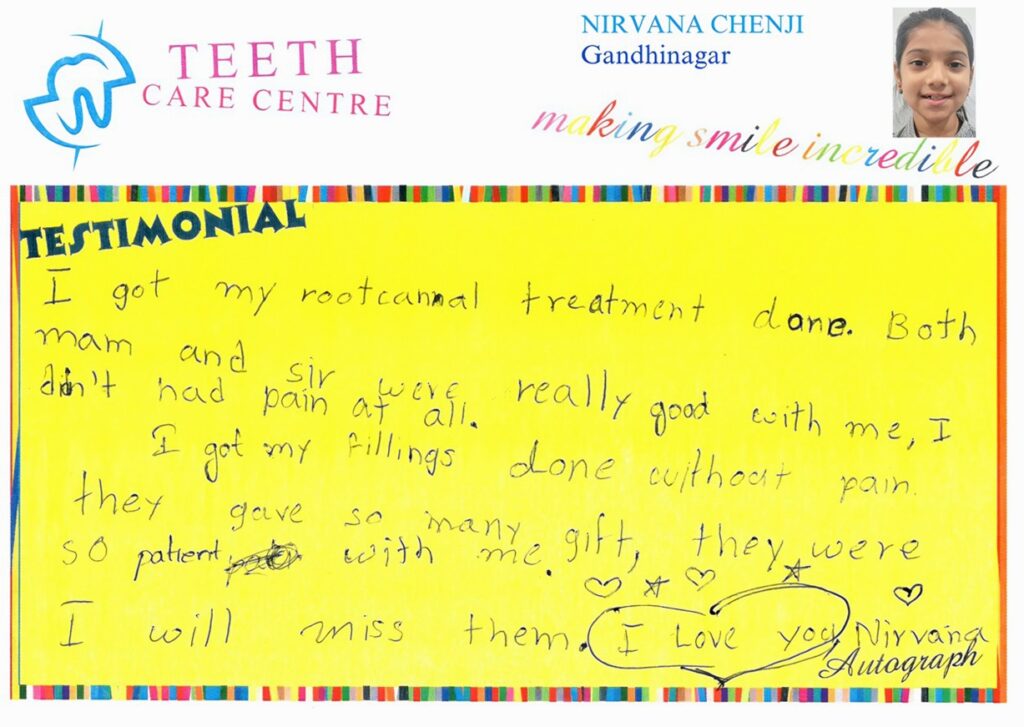 TEETH
CARE CENTRE
NIRVANA CHENJI
Gandhinagar
making smile incredible
TESTIMONIAL
I got my rootcannal treatment done. Both
mam and sir were really good with me, I
didn't had pain at all.
I got my fillings done without pain.
they gave so many gift, they were
so patient with me.
I will miss them. I Love you Nirvana
Autograph